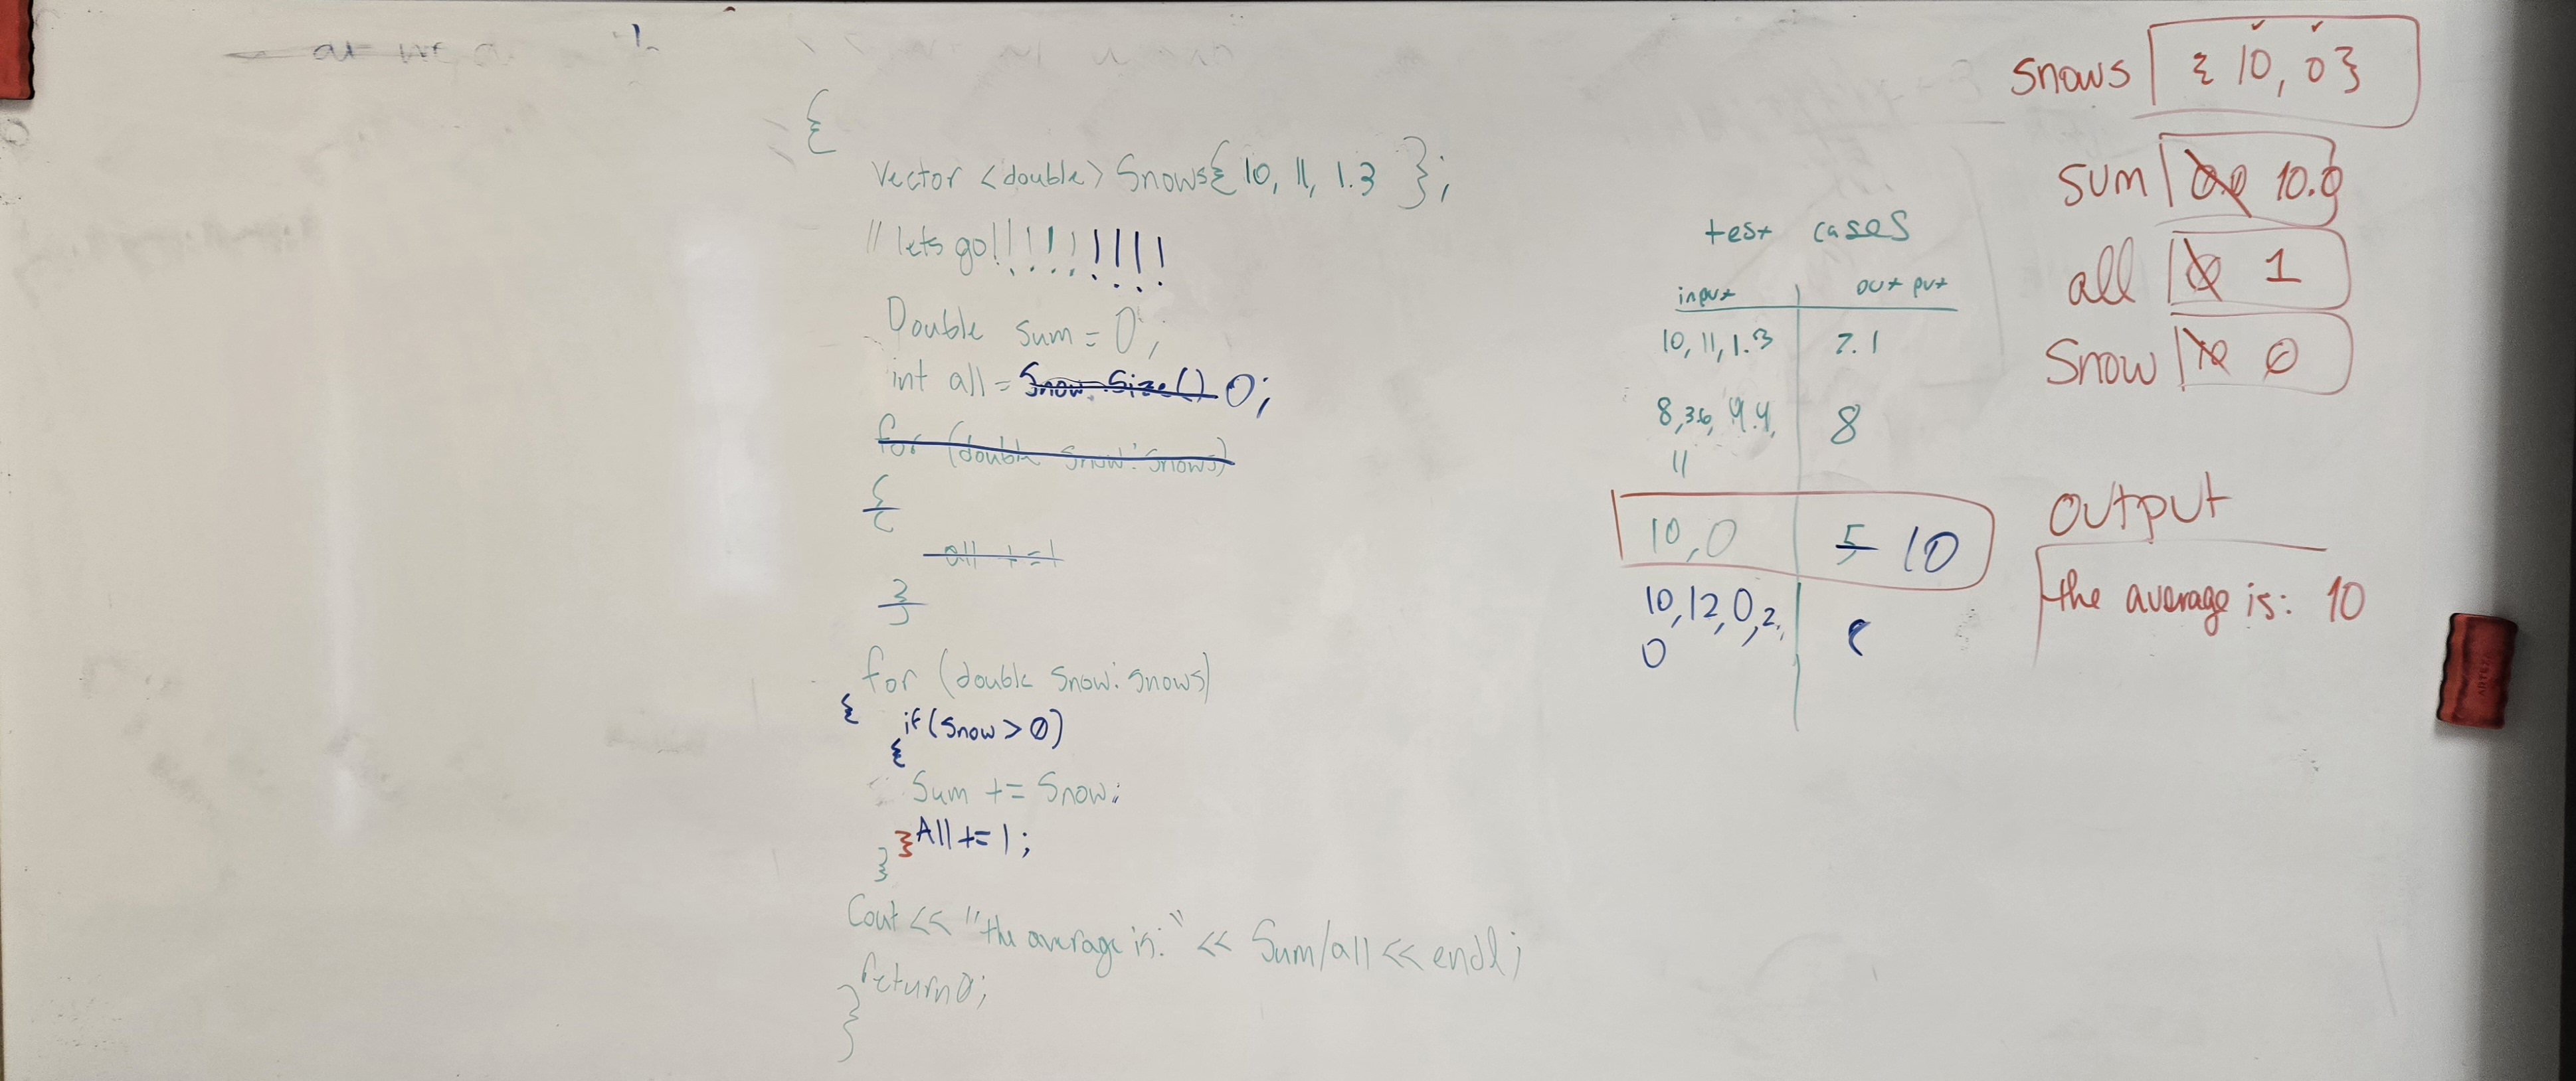 {
Vector <double> Snows{ 10, 11, 1.3 };
// lets go!!!!!!!!!
Double sum = 0;
int all = Snow.Size() 0;
for (double Snow: Snows)
{
all += 1
}
for (double Snow: Snows)
{ if (Snow > 0)
{
Sum += Snow;
} All += 1;
}
Cout << "the average is:" << Sum/all << endl;
return 0;
}
test cases
input output
10, 11, 1.3 7.1
8, 3.6, 9.4, 8
11
10, 0 5 10
10, 12, 0, 2, 8
0
Snows { 10, 0 }
Sum 0.0 10.0
all 0 1
Snow 10 0
Output
the average is: 10